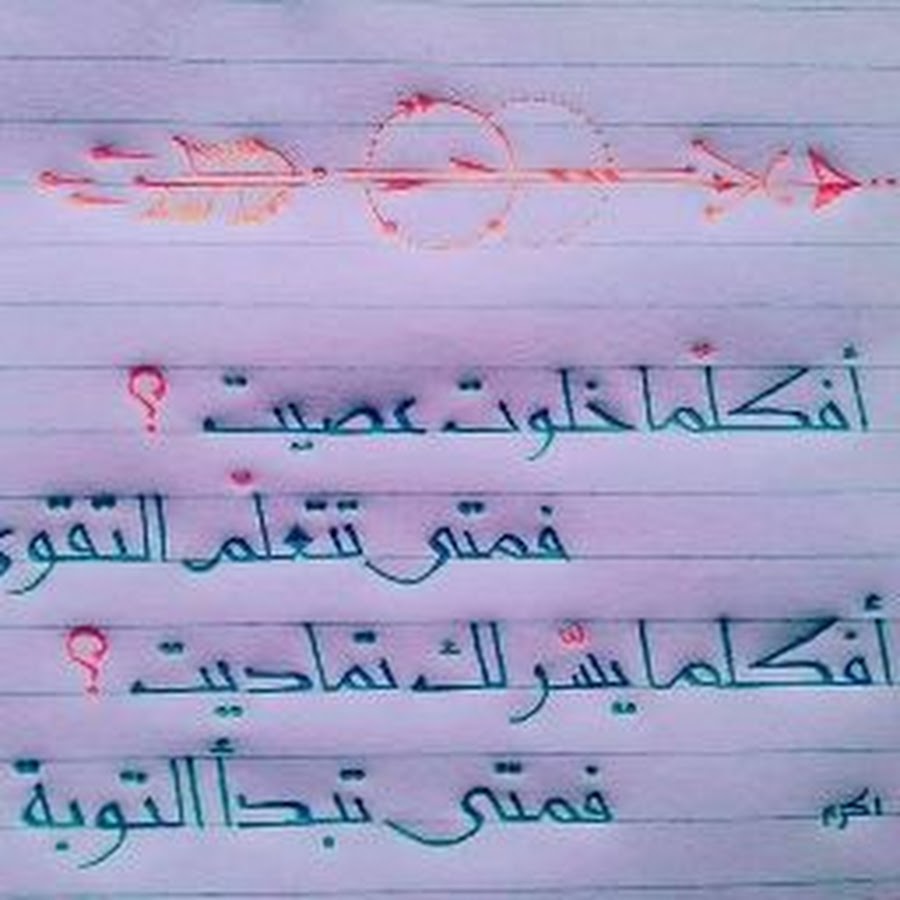 أفكلما خلوت عصيت ؟
فمتى تتعلم التقوى
أفكلما يسّر لك تماديت ؟
فمتى تبدأ التوبة
اكرم